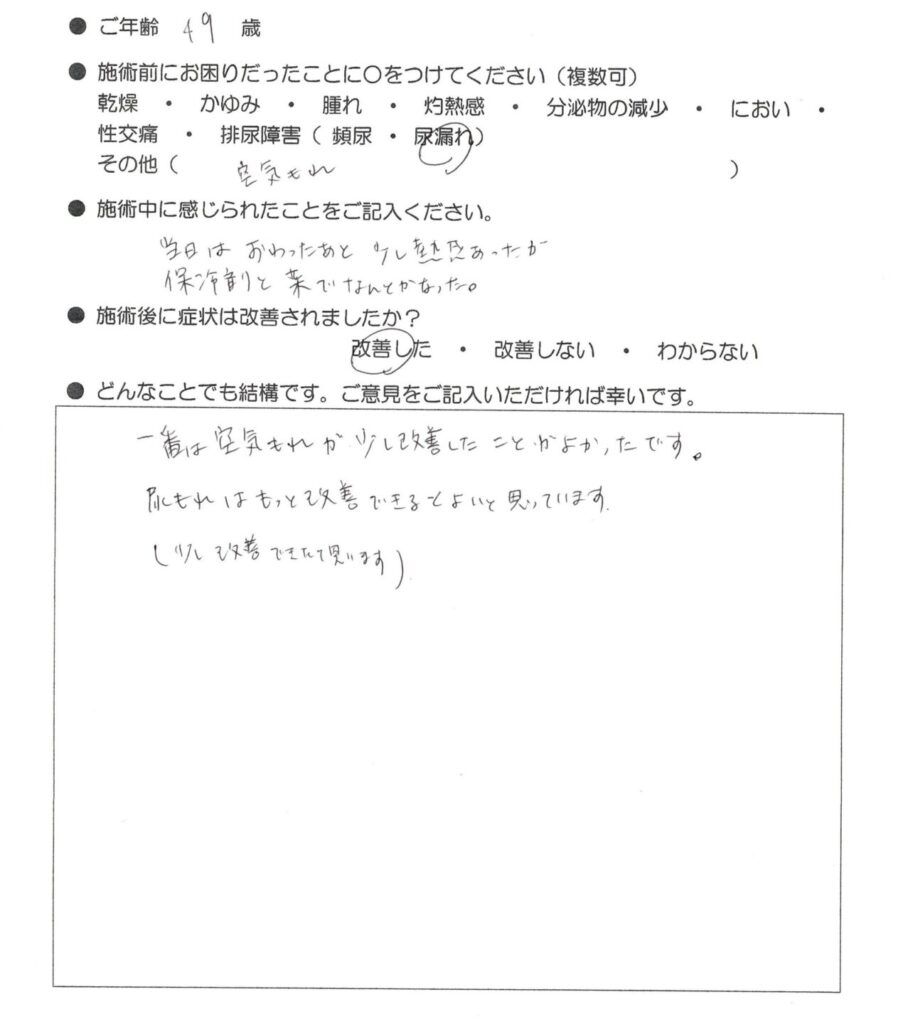 ● ご年齢 49 歳
● 施術前にお困りだったことに〇をつけてください（複数可）
乾燥 ・ かゆみ ・ 腫れ ・ 灼熱感 ・ 分泌物の減少 ・ におい ・
性交痛 ・ 排尿障害（ 頻尿 ・ 尿漏れ）
その他（ 空気もれ ）
● 施術中に感じられたことをご記入ください。
当日は おわったあと 少し熱感あったが
保冷剤と薬でなんとかなった。
● 施術後に症状は改善されましたか？
改善した ・ 改善しない ・ わからない
● どんなことでも結構です。ご意見をご記入いただければ幸いです。
一番は空気もれが少し改善したことがよかったです。
尿もれはもっと改善できるとよいと思っています。
(少し改善できたて思います)